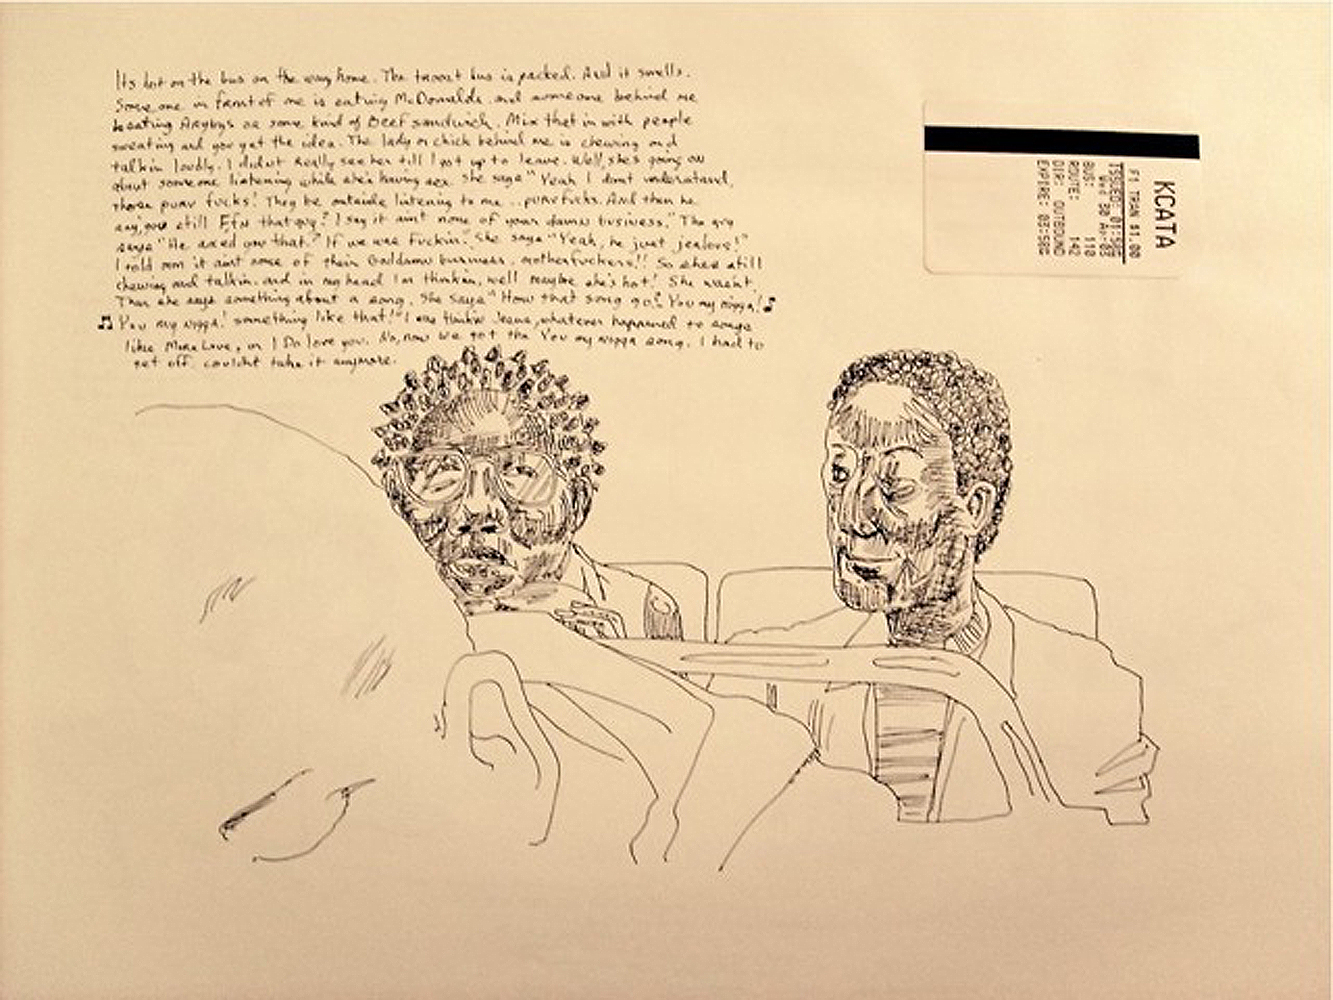 Its hot on the bus on the way home. The troost bus is packed. And it smells.
Some one in front of me is eating McDonalds and someone behind me
is eating Arybys or some kind of Beef sandwich. Mix that in with people
sweating and you get the idea. The lady or chick behind me is chewing and
talkin loudly. I didnt really see her till I got up to leave. Well, she's going on
about someone listening while she's having sex. She says "Yeah I dont understand,
those punk fucks! They be outside listening to me .. punk fucks. And then he
say, you still Efn that guy? I say it aint none of your damn business." The guy
says "He axed you that?" If we was Fuckin? She says "Yeah, he just jealous!"
I told em it aint none of their Goddamn business, motherfuckers!! So shes still
chewing and talkin. and in my head Im thinkin, well maybe she's hot! She wasn't.
Then she says something about a song. She says "How that song go? You my nigga! ♪
♫ You my nigga! something like that!" I was thinkin Jesus, whatever happened to songs
like More Love, or I Do love you. No, now we got the You my nigga song. I had to
get off. couldnt take it anymore.
KCATA
F1 TRAN $1.00
ISSUED: 01:58P
Wed 30 Apr 03
BUS: 110
ROUTE: 142
DIR: OUTBOUND
EXPIRE: 03:58P